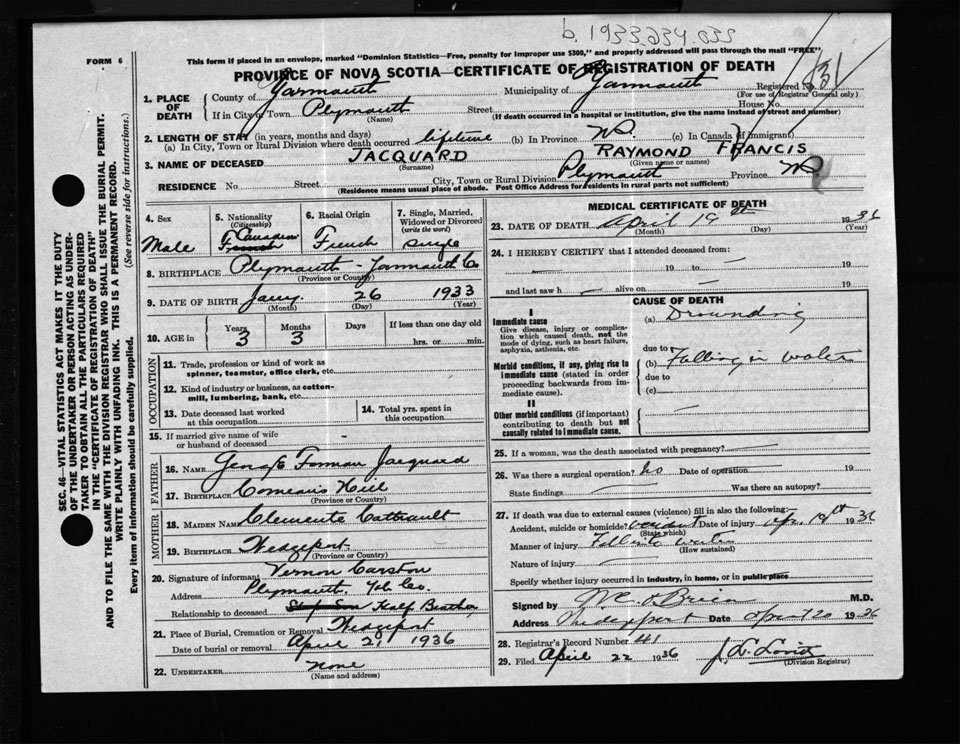 b. 1933 634 033
FORM 6
This form if placed in an envelope, marked "Dominion Statistics—Free, penalty for improper use $300," and properly addressed will pass through the mail "FREE"
PROVINCE OF NOVA SCOTIA—CERTIFICATE OF REGISTRATION OF DEATH
SEC. 46—VITAL STATISTICS ACT MAKES IT THE DUTY
OF THE UNDERTAKER OR PERSON ACTING AS UNDER-
TAKER TO OBTAIN ALL THE PARTICULARS REQUIRED
IN THE "CERTIFICATE OF REGISTRATION OF DEATH"
AND TO FILE THE SAME WITH THE DIVISION REGISTRAR WHO SHALL ISSUE THE BURIAL PERMIT.
WRITE PLAINLY WITH UNFADING INK. THIS IS A PERMANENT RECORD.
Every item of Information should be carefully supplied. (See reverse side for instructions.)
1. PLACE OF DEATH County of Yarmouth Municipality of Yarmouth Registered No.
(For use of Registrar General only)
If in City or Town Plymouth Street House No.
(Name) (If death occurred in a hospital or institution, give the name instead of street and number)
2. LENGTH OF STAY (in years, months and days)
(a) In City, Town or Rural Division where death occurred lifetime (b) In Province NS. (c) In Canada (if immigrant)
3. NAME OF DECEASED JACQUARD RAYMOND FRANCIS
(Surname) (Given name or names)
RESIDENCE No. Street City, Town or Rural Division Plymouth Province NS
(Residence means usual place of abode. Post Office Address for residents in rural parts not sufficient)
4. Sex 5. Nationality (Citizenship) 6. Racial Origin 7. Single, Married, Widowed or Divorced (write the word)
Male Canadian French French single
8. BIRTHPLACE Plymouth - Yarmouth Co
(Province or Country)
9. DATE OF BIRTH Jany. 26 1933
(Month) (Day) (Year)
10. AGE in Years Months Days If less than one day old
3 3 hrs. or min.
OCCUPATION
11. Trade, profession or kind of work as
spinner, teamster, office clerk, etc.
12. Kind of industry or business, as cotton-
mill, lumbering, bank, etc.
13. Date deceased last worked
at this occupation
14. Total yrs. spent in
this occupation
15. If married give name of wife
or husband of deceased
FATHER
16. NAME Forman Jacquard
17. BIRTHPLACE Comeau's Hill
(Province or Country)
MOTHER
18. MAIDEN NAME
19. BIRTHPLACE Wedgeport
(Province or Country)
20. Signature of informant Vernon
Address Plymouth, Yth Co.
Relationship to deceased Step Son Half Brother
21. Place of Burial, Cremation or Removal Wedgeport
Date of burial or removal April 21 1936
22. UNDERTAKER none
(Name and Address)
MEDICAL CERTIFICATE OF DEATH
23. DATE OF DEATH April 19th 1936
(Month) (Day) (Year)
24. I HEREBY CERTIFY that I attended deceased from:
19 to 19
and last saw h alive on 19
CAUSE OF DEATH
I
Immediate cause
Give disease, injury or complica-
tion which caused death, not the
mode of dying, such as heart failure,
asphyxia, asthenia, etc.
(a) Drownding
due to
Morbid conditions, if any, giving rise to
immediate cause (stated in order
proceeding backwards from im-
mediate cause).
(b) Falling in water
due to
(c)
II
Other morbid conditions (if important)
contributing to death but not
causally related to immediate cause.
25. If a woman, was the death associated with pregnancy?
26. Was there a surgical operation? no Date of operation 19
State findings Was there an autopsy?
27. If death was due to external causes (violence) fill in also the following:
Accident, suicide or homicide? accident Date of injury Apr. 19th 1936
(State which)
Manner of injury Fell into water
(How sustained)
Nature of injury
Specify whether injury occurred in industry, in home, or in public place
Signed by O'Brien M.D.
Address Wedgeport Date April 20 1936
28. Registrar's Record Number 41
29. Filed April 22 1936
(Division Registrar)